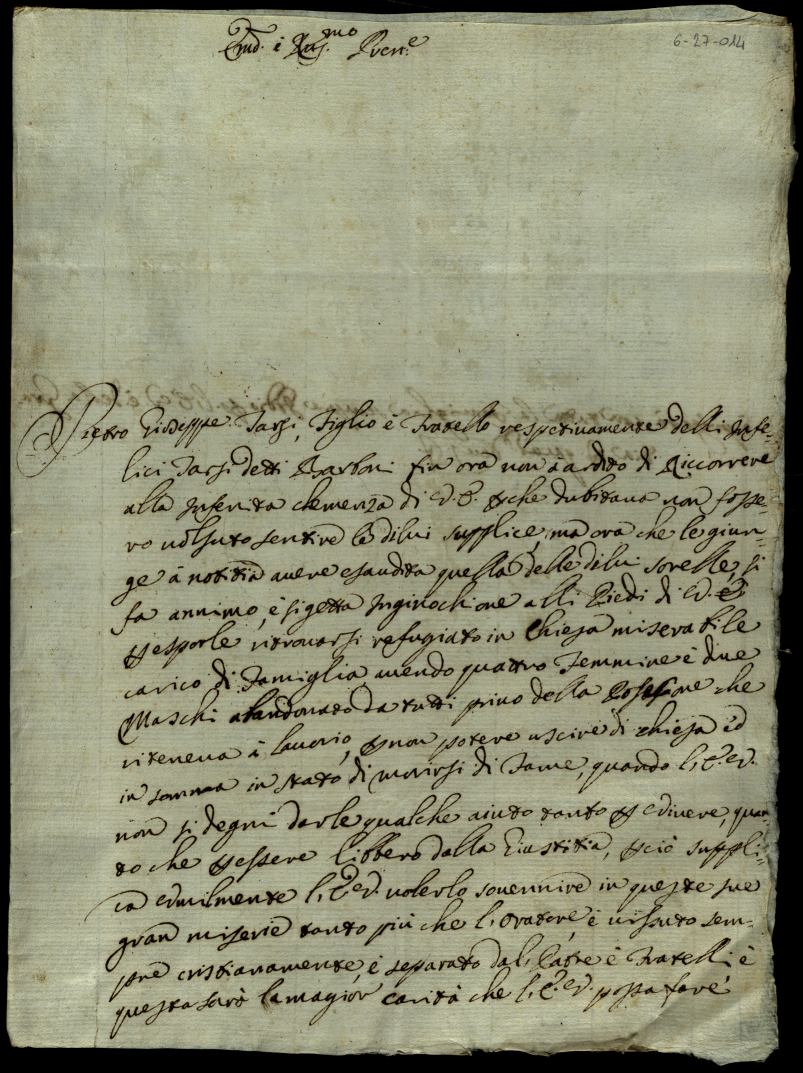 Em.º e Re.mo Pren.e
6-27-014
Pietro Gioseppe Tarsi, Figlio è Fratello respetivamente delli Infe-
lici Tarsi detti Barboni fin ora non à ardito di Riccorrere
alla Infenita clemenza di V. E. che dubitava non fosse-
ro volsuto sentire le di lui supplice, ma ora che le giun-
ge à notitia avere esaudita quella delle di lui sorelle, si
fa annimo, è si getta Inginochione alli Piedi di V. E.
esporle ritrovarsi refugiato in Chiesa miserabile
carico di Famiglia avendo quattro Femmine è due
Maschi abandonato da tutti privo della Possesione che
riteneva à lavorio, non potere uscire di chiesa ed
in somma in stato di morirsi di Fame, quando l'E. V.
non si degni darle qualche aiuto tanto vivere, quan-
to che essere libbero dalla Giustitia, ciò suppli-
ca umilmente l'E. V. volerlo sovennire in queste sue
gran miserie tanto più che l'oratore è vissuto sem-
pre cristianamente, è separato dal Patre è Fratelli è
questa sarà la magior carità che l'E. V. possa fare